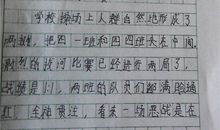 学校操场上人群自然地形成了
两排，把四一班和四四班夹在中间，
激烈的拔河比赛已经进行两局了，
战绩是1:1，两班的队员们都满脸通
红，全神贯注，看来一场恶战是在